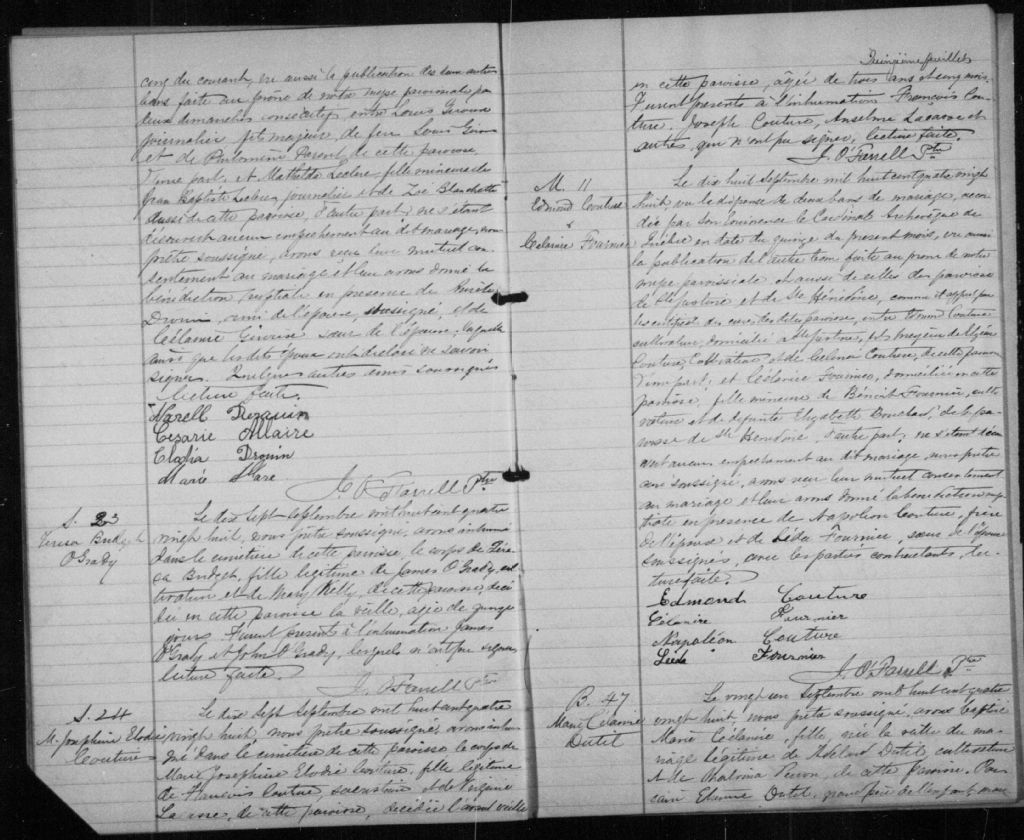 cinq du courant, vu aussi la publication des deux autres
bans faite au prône de notre messe paroissiale par
deux dimanches consecutifs, entre Louis Giroux
journalier fils majeur de feu Louis Giroux
et de Philomène Parent, de cette paroisse,
d'une part, et Mathilde Leclerc, fille mineure de
Jean Baptiste Leclerc, journalier et de Zoé Blanchette
aussi de cette paroisse, d'autre part; ne s'étant
découvert aucun empêchement au dit mariage, nous
prêtre soussigné, avons reçu leur mutuel con
sentement au mariage et leur avons donné la
bénédiction nuptiale en présence de
Drouin, ami de l'époux, soussigné, et de
Célanie Giroux sœur de l'époux, laquelle
ainsi que les dits époux ont déclaré ne savoir
signer. Quelques autres amis soussignés
Lecture faite.
Narell Drouin
Cesarie Allaire
Clofia Drouin
Marie
J. O'Farrell Ptre
S. 23
Teresa Bridget
O'Grady
Le dix sept septembre mil huit cent quatre
vingt huit, nous prêtre soussigné, avons inhumé
dans le cimetière de cette paroisse, le corps de Térè
sa Bridget, fille légitime de James O'Grady, cul
tivateur et de Mary Kelly, de cette paroisse, décé
dée en cette paroisse la veille, agée de quinze
jours. Furent présents à l'inhumation James
O'Grady et John O'Grady, lesquels n'ont pu signer
lecture faite.
J. O'Farrell Ptre
S. 24
M. Josephine Elodie
Couture
Le dix sept septembre mil huit cent quatre
vingt huit, nous prêtre soussigné, avons inhu
mé dans le cimetière de cette paroisse le corps de
Marie Josephine Elodie Couture, fille légitime
de François Couture sacristain et de
de cette paroisse, décédée l'avant veille
Quinzième feuillet
en cette paroisse, âgée de trois ans et cinq mois.
Furent présents à l'inhumation François Cou-
ture, Joseph Couture, Anselme et
autres, qui n'ont pu signer, lecture faite.
J. O'Farrell Ptre
M. 11
Edmond Couture
&
Célanire Fournier
Le dix huit septembre mil huit cent quatre vingt
huit, vu la dispense de deux bans de mariage, accor
dée par son Eminence le Cardinal Archevêque de
Québec en date du quinze du présent mois, vu aussi
la publication de l'autre ban faite au prône de notre
messe paroissiale et aussi de celles des paroisses
de et de Ste Hénédine, comme il appert par
les certificats des curés des dites paroisses, entre Edmond Couture
cultivateur, domicilié à fils majeur de
Couture, cultivateur, et de Couture, de cette paroisse
d'une part; et Célanire Fournier, domiciliée en cette
paroisse, fille mineure de Benoit Fournier, culti
vateur et de défunte Elizabeth de la pa-
roisse de Ste Hénédine, d'autre part; ne s'étant décou
vert aucun empêchement au dit mariage, nous prêtre
curé soussigné, avons reçu leur mutuel consentement
au mariage et leur avons donné la bénédiction nup
tiale en présence de Napoléon Couture, frère
de l'époux et de Léda Fournier, sœur de l'épouse
soussignés, avec les parties contractantes, lec-
ture faite.
Edmond Couture
Célanire Fournier
Napoléon Couture
Léda Fournier
J. O'Farrell Ptre
B. 47
Marie Célanire
Dutil
Le vingt un Septembre mil huit cent quatre
vingt huit, nous prêtre soussigné, avons baptisé
Marie Célanire, fille, née la veille du ma-
riage légitime de Dutil, cultivateur
et de de cette paroisse. Par
rain Etienne Dutil, grand père de l'enfant,